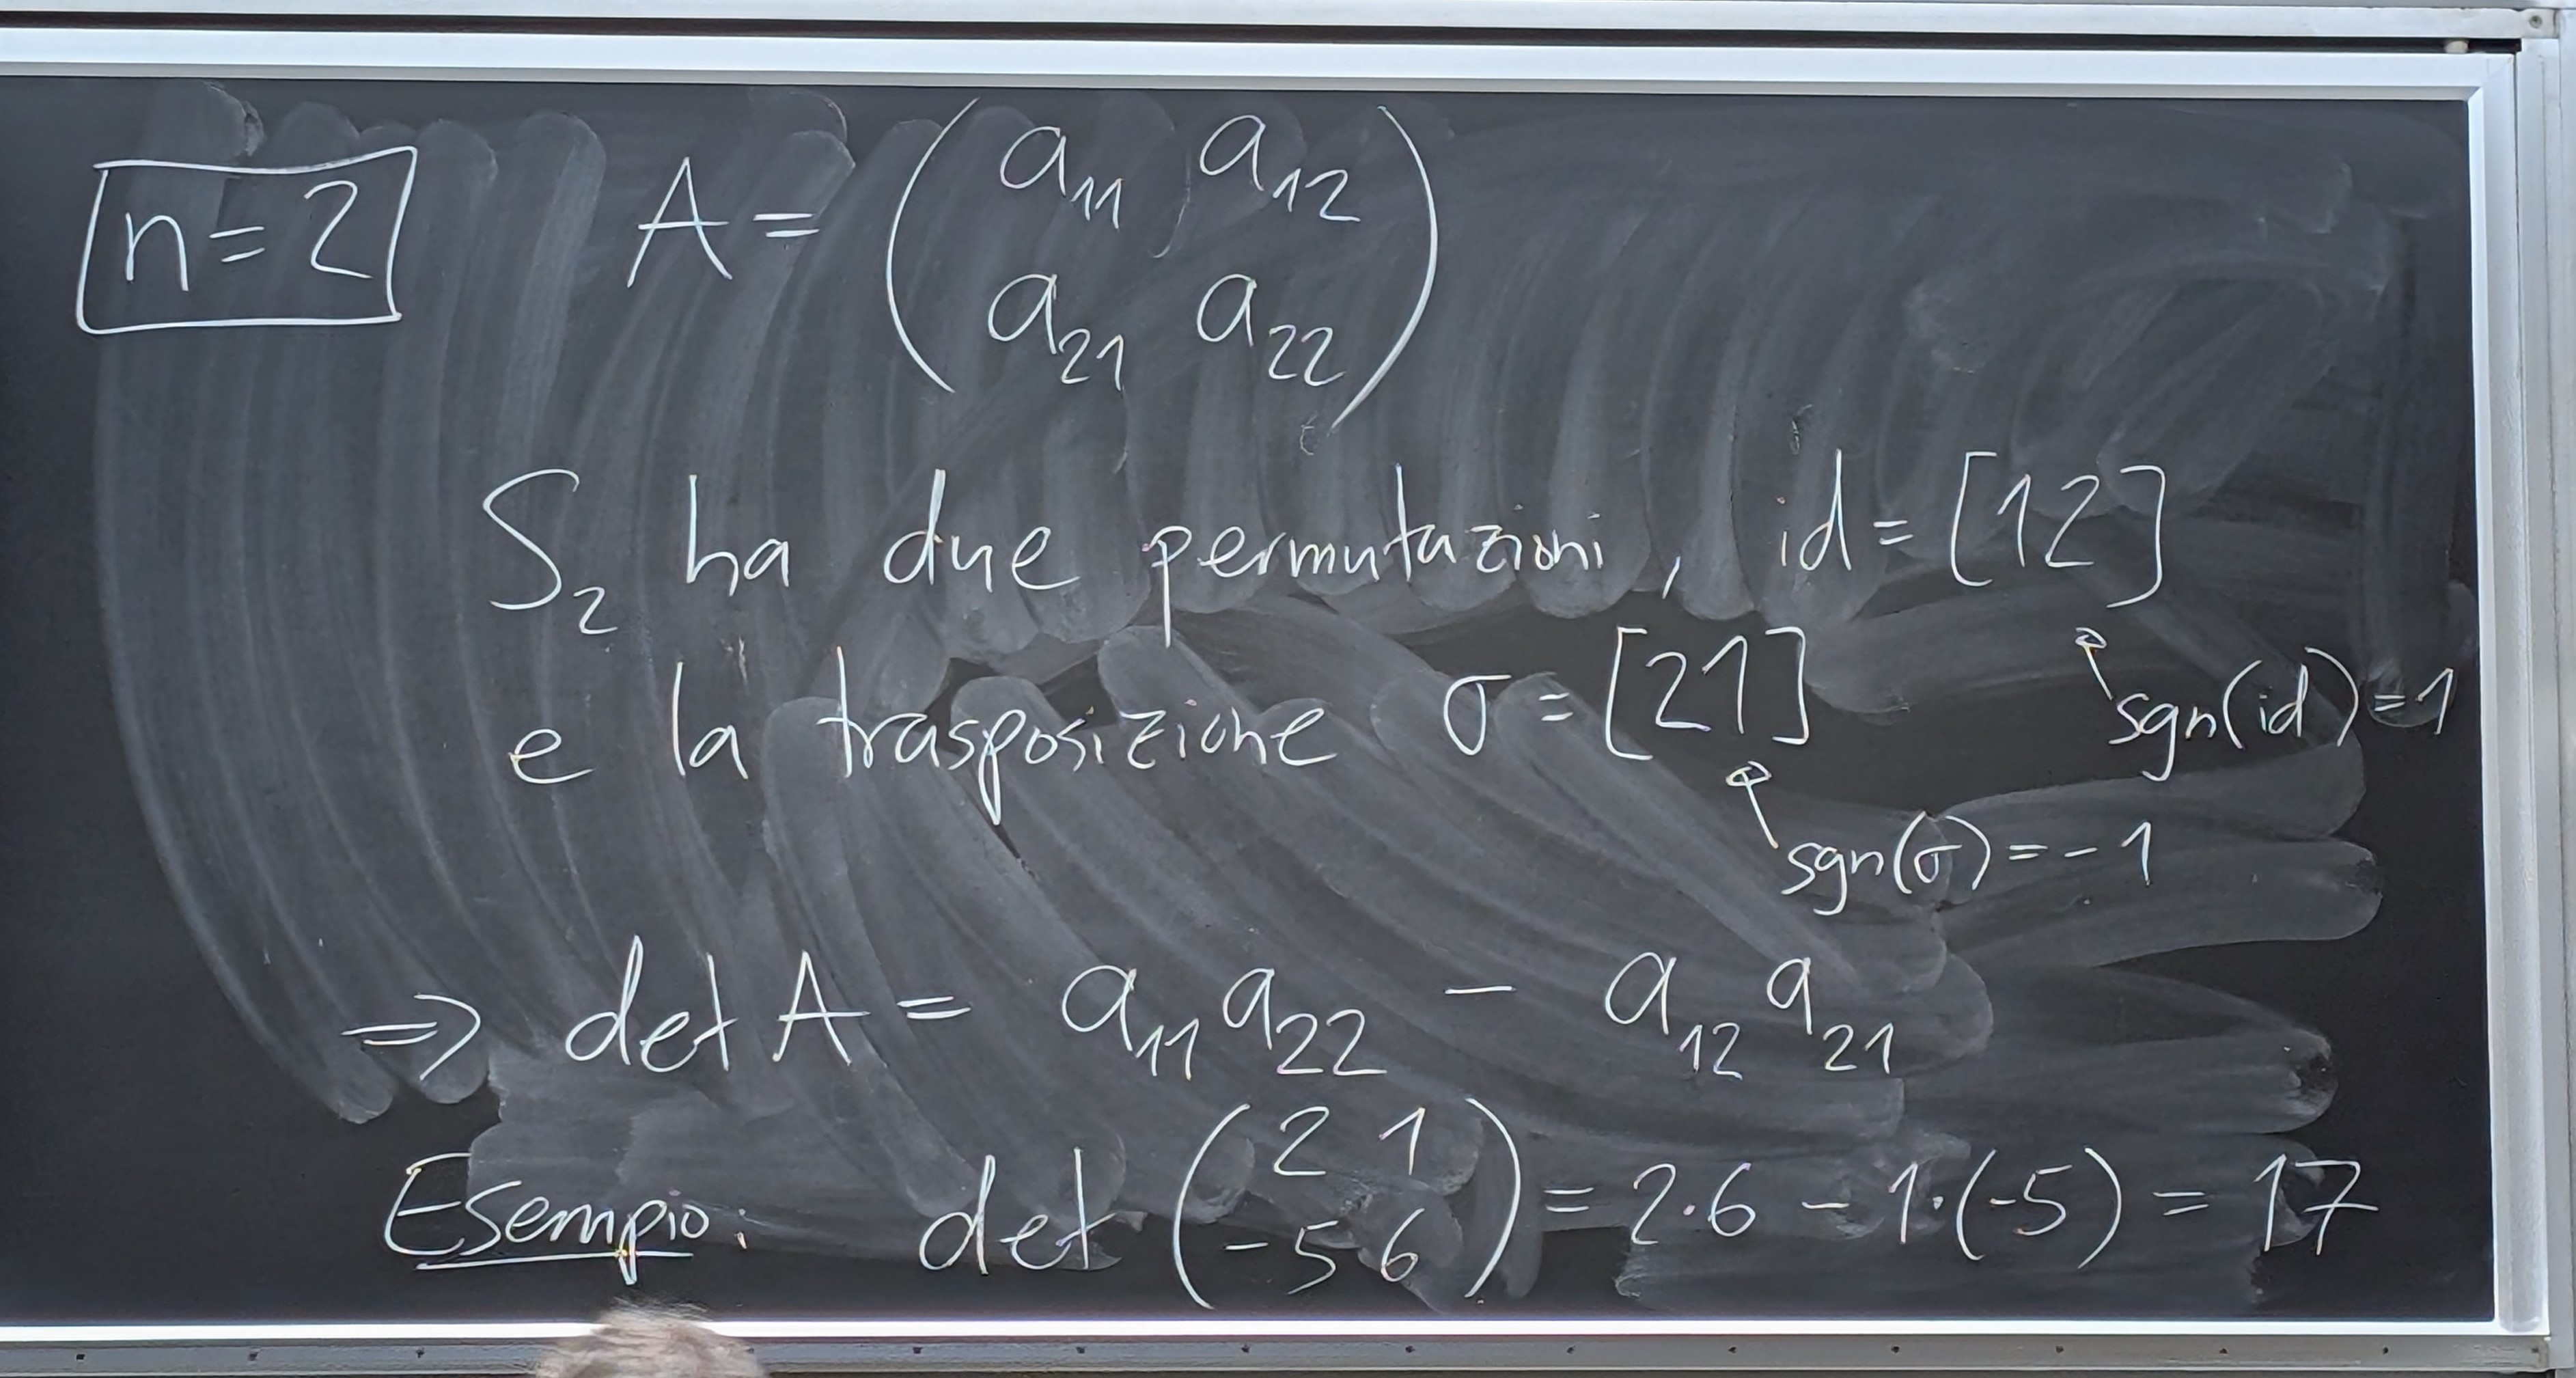 n=2 A = ( a₁₁ a₁₂
a₂₁ a₂₂ )
S₂ ha due permutazioni, id = [12]
sgn(id) = 1
e la trasposizione σ = [21]
sgn(σ) = -1
⇒ det A = a₁₁ a₂₂ - a₁₂ a₂₁
Esempio: det ( 2 1
-5 6 ) = 2·6 - 1·(-5) = 17